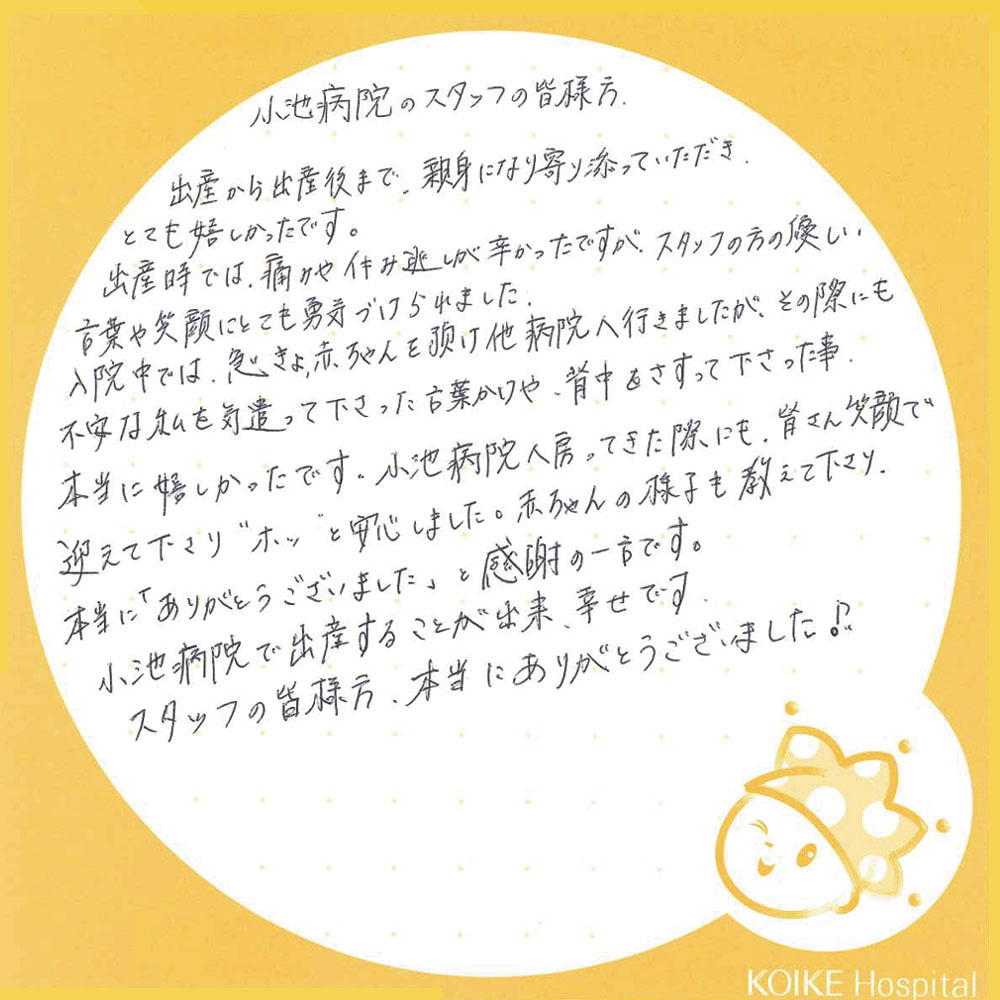 小池病院のスタッフの皆様方.
出産から出産後まで、親身になり寄り添っていただき、
とても嬉しかったです。
出産時では、痛みや休み逃しが辛かったですが、スタッフの方の優しい、
言葉や笑顔にとても勇気づけられました.
入院中では、急きょ、赤ちゃんを預け他病院へ行きましたが、その際にも
不安な私を気遣って下さった言葉かけや、背中をさすって下さった事.
本当に嬉しかったです。小池病院へ戻ってきた際にも、皆さん笑顔で
迎えて下さり"ホッ"と安心しました。赤ちゃんの様子も教えて下さり.
本当に「ありがとうございました」と感謝の一言です。
小池病院で出産することが出来、幸せです.
スタッフの皆様方、本当にありがとうございました!!
KOIKE Hospital